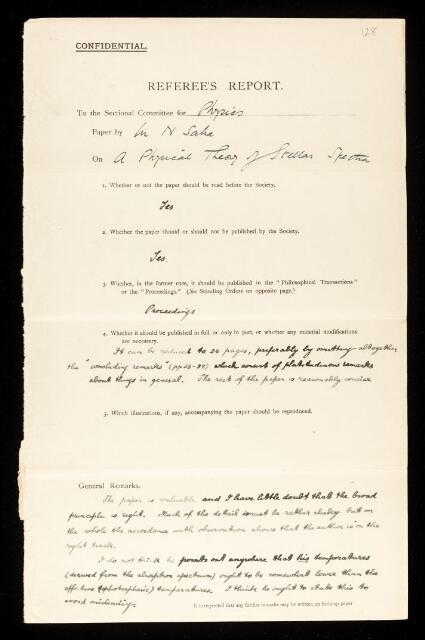 128
CONFIDENTIAL.
REFEREE'S REPORT.
To the Sectional Committee for Physics
Paper by M N Saha
On A Physical Theory of Stellar Spectra
1. Whether or not the paper should be read before the Society.
Yes
2. Whether the paper should or should not be published by the Society.
Yes.
3. Whether, in the former case, it should be published in the "Philosophical Transactions"
or the "Proceedings." (See Standing Orders on opposite page.)
Proceedings
4. Whether it should be published in full or only in part, or whether any material modifications
are necessary.
It can be reduced to 24 pages, preferably by omitting altogether
the "concluding remarks" which consist of platitudinous remarks
about things in general. The rest of the paper is reasonably concise
5. Which illustrations, if any, accompanying the paper should be reproduced.
General Remarks.
The paper is valuable and I have little doubt that the broad
principle is right. Much of the detail must be rather shaky but on
the whole the accordance with observation shows that the author is on the
right track.
I do not think he points out anywhere that his temperatures
(derived from the absorption spectrum) ought to be somewhat lower than the
effective (photospheric) temperatures. I think he ought to state this to
avoid misleading.
It is requested that any further remarks may be written on foolscap paper